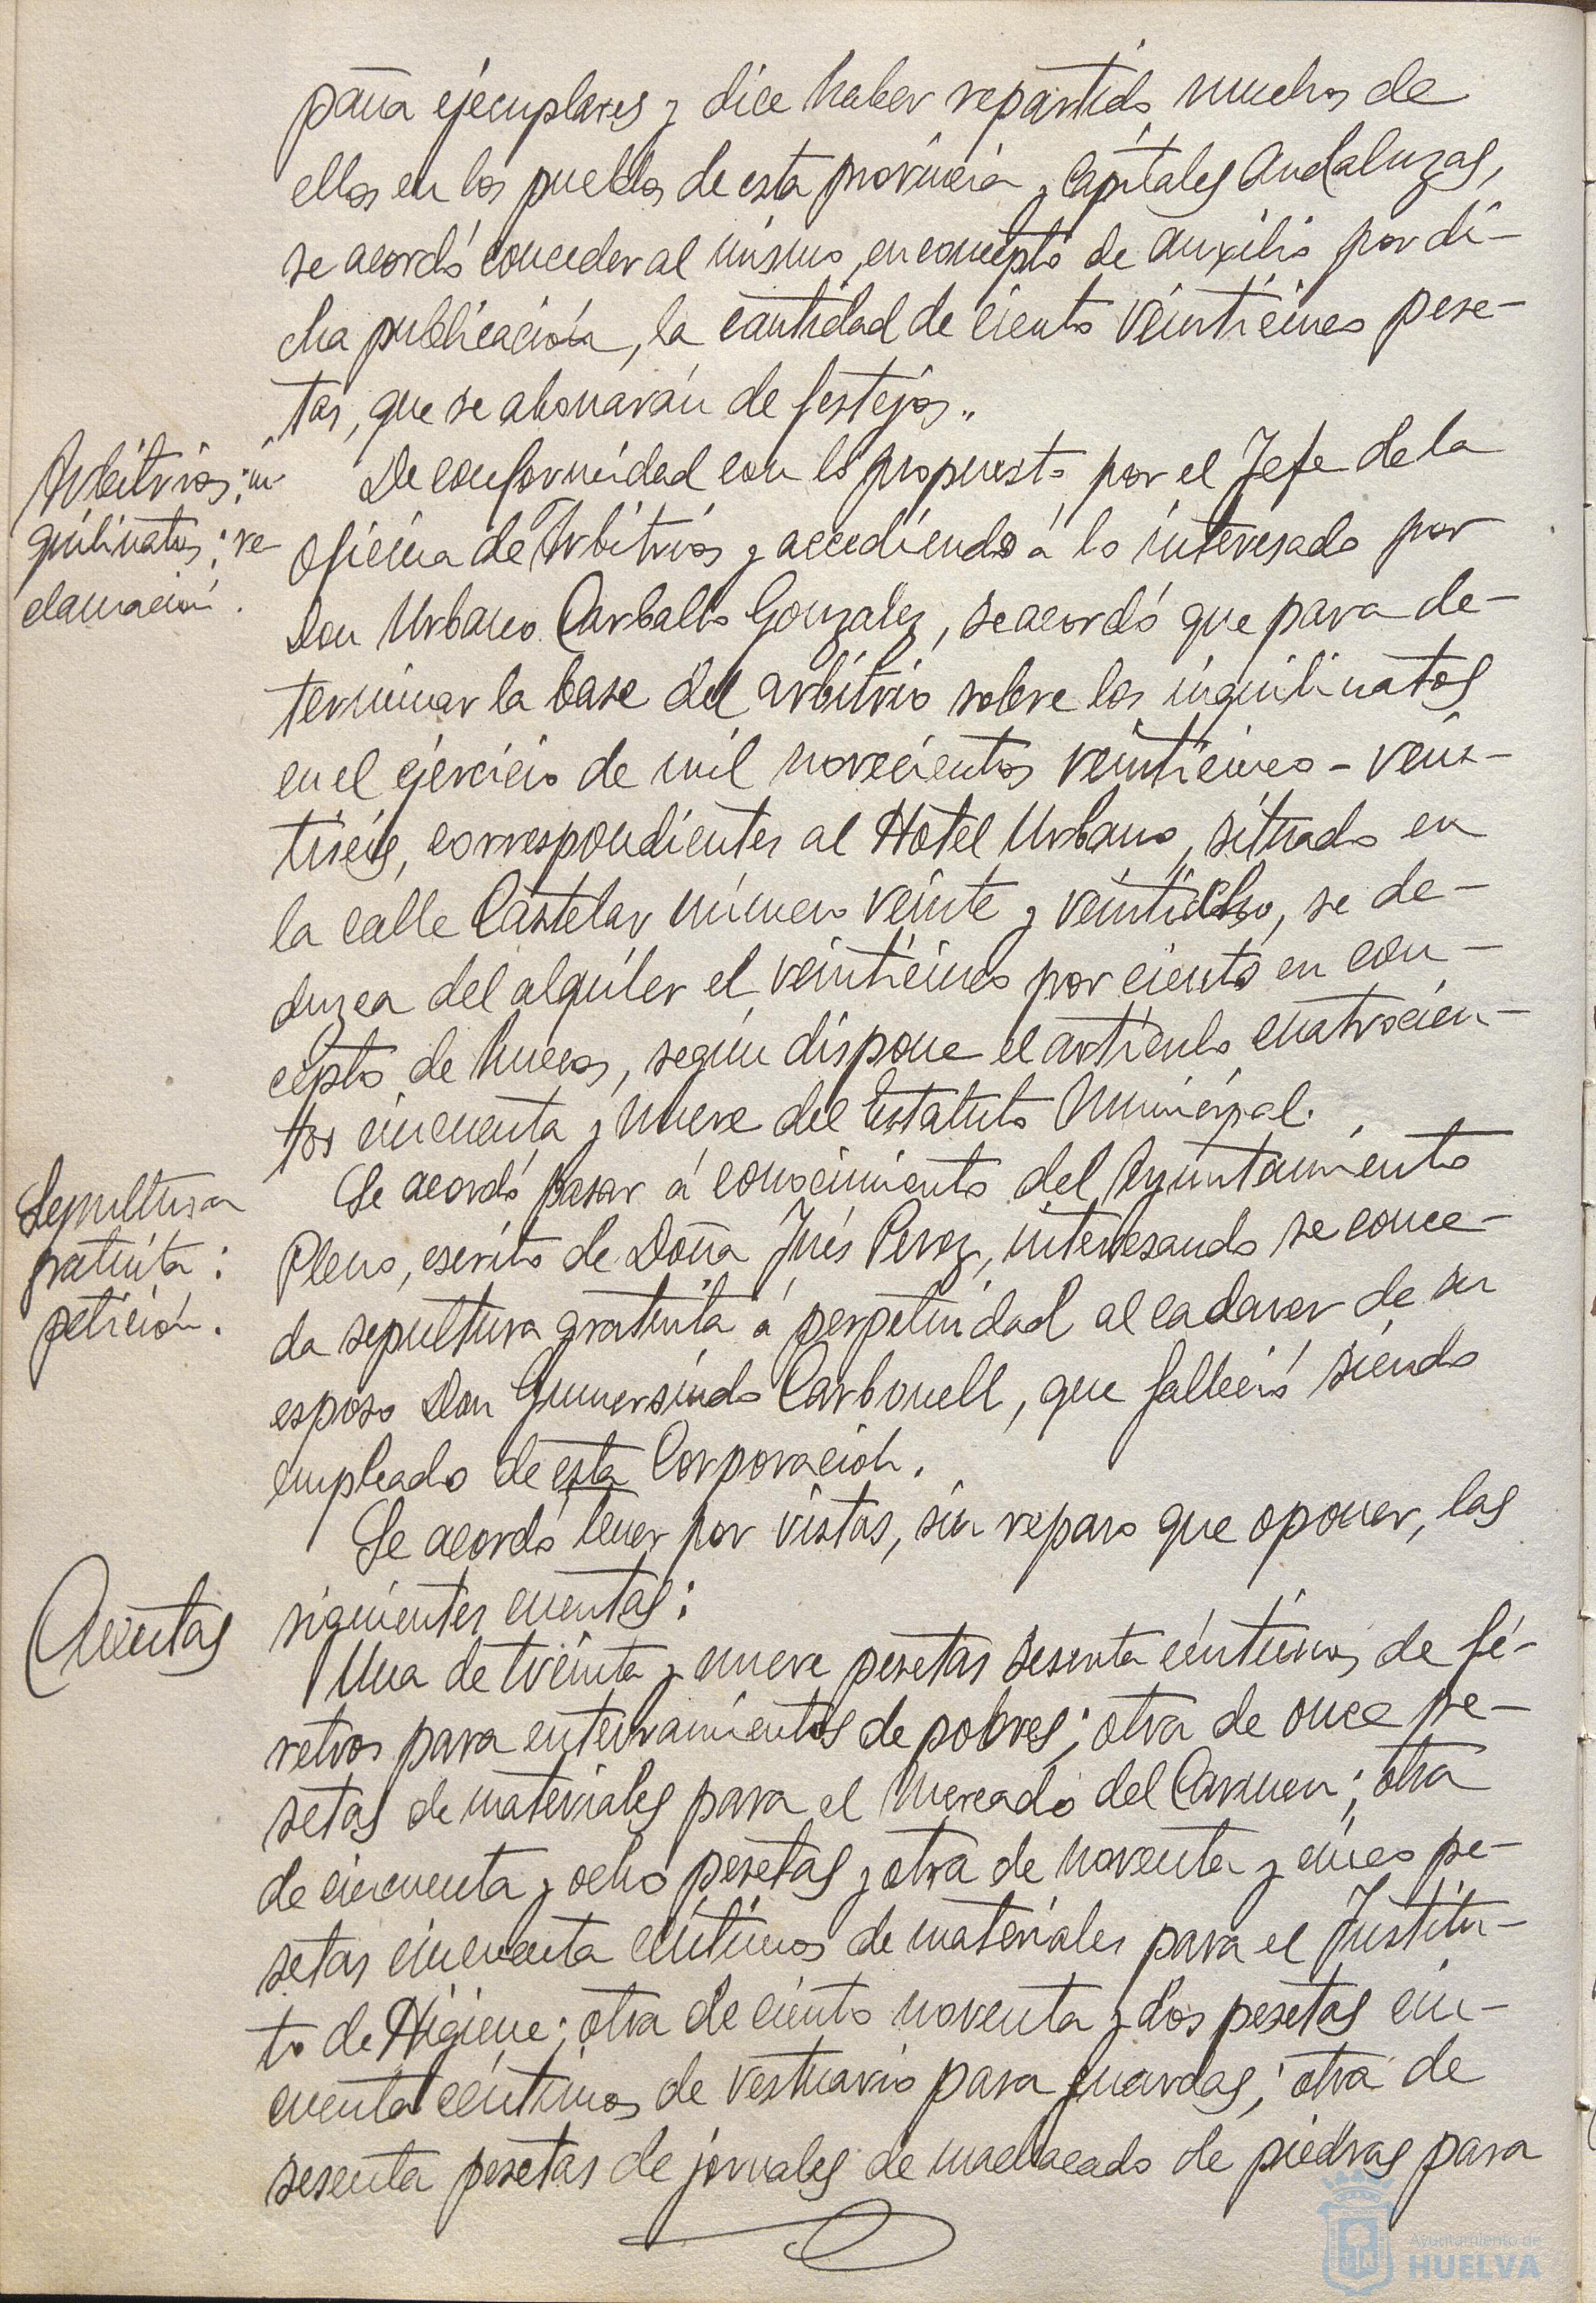 paña ejemplares y dice haber repartido muchos de
ellos en los pueblos de esta provincia y Capitales Andaluzas,
se acordó conceder al mismo, en concepto de auxilio por di-
cha publicación, la cantidad de ciento veinticinco pese-
tas, que se abonarán de festejos.
Arbitrios: in-
quilinatos: re-
clamación.
De conformidad con lo propuesto por el Jefe de la
oficina de Arbitrios y accediendo á lo interesado por
Don Urbano Carballo Gonzalez, se acordó que para de-
terminar la base del arbitrio sobre los inquilinatos
en el ejercicio de mil novecientos veinticinco - vein-
tiseis, correspondientes al Hotel Urbano, situado en
la calle Castelar número veinte y veintidos, se de-
duzca del alquiler el veinticinco por ciento en con-
cepto de huecos, según dispone el artículo cuatrocien-
tos cincuenta y nueve del Estatuto Municipal.
Sepultura
gratuita:
petición.
Se acordó pasar á conocimiento del Ayuntamiento
Pleno, escrito de Doña Inés Perez, interesando se conce-
da sepultura gratuita á perpetuidad al cadaver de su
esposo Don Gumersindo Carbonell, que falleció siendo
empleado de esta Corporación.
Se acordó tener por vistas, sin reparo que oponer, las
Cuentas
siguientes cuentas:
Una de treinta y nueve pesetas sesenta céntimos de fé-
retros para enterramientos de pobres; otra de once pe-
setas de materiales para el Mercado del Carmen; otra
de cincuenta y ocho pesetas y otra de noventa y cinco pe-
setas cincuenta céntimos de materiales para el Institu-
to de Higiene; otra de ciento noventa y dos pesetas cin-
cuenta céntimos de vestuario para guardas; otra de
sesenta pesetas de jornales de machacado de piedras para
Ayuntamiento de
HUELVA